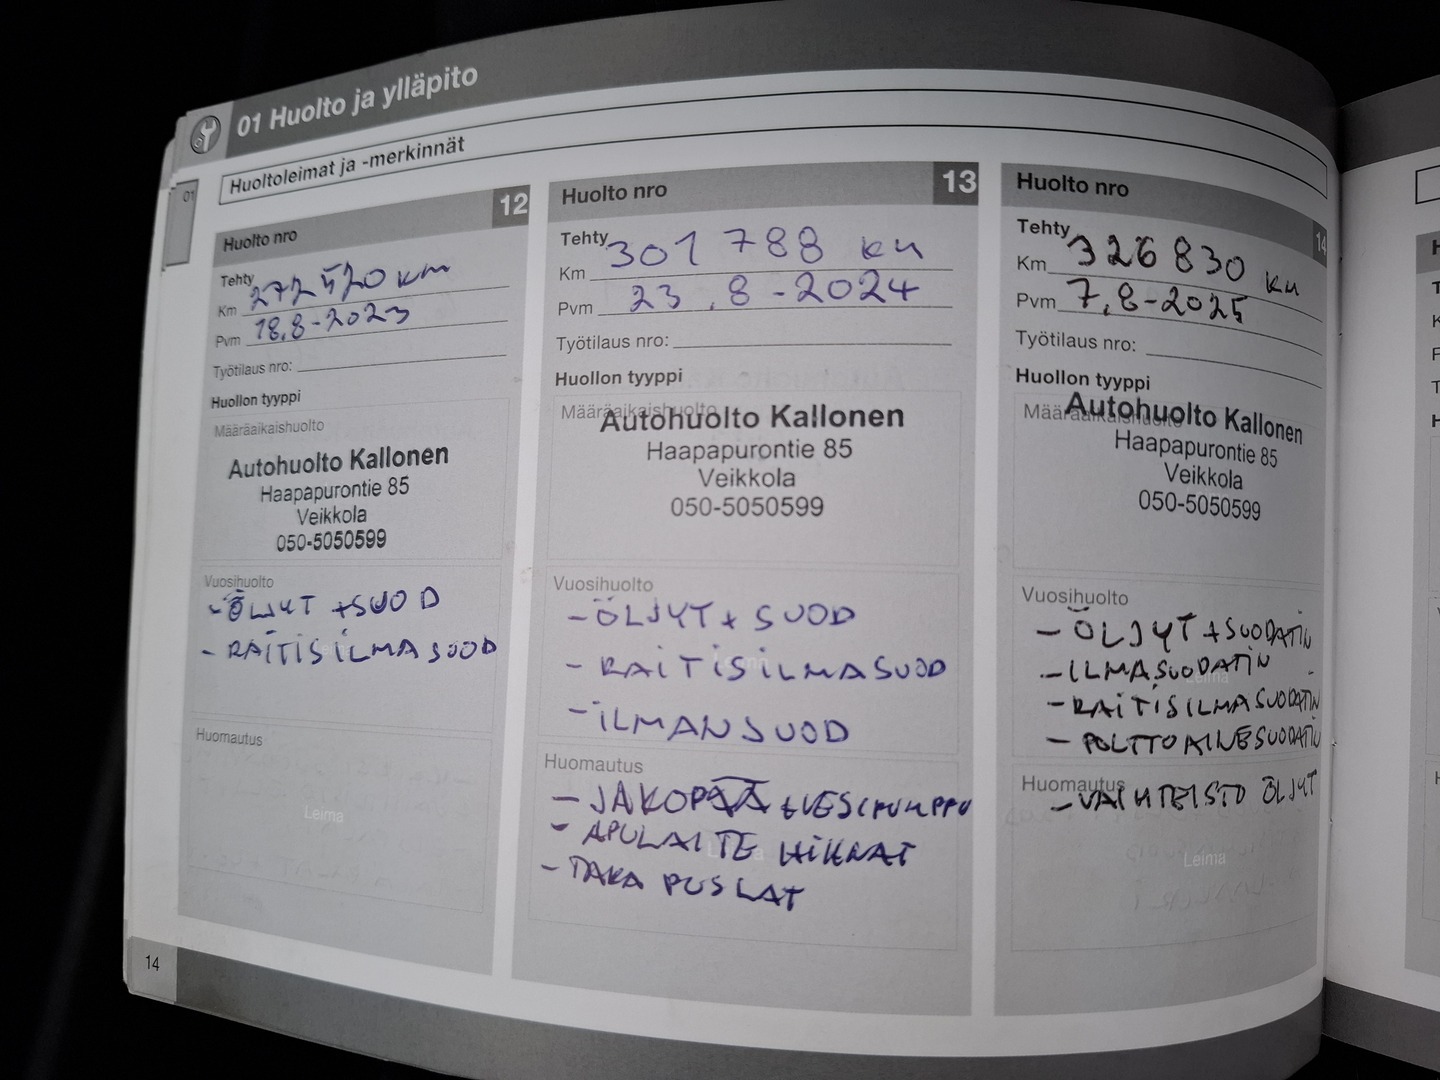 01 Huolto ja ylläpito
Huoltoleimat ja -merkinnät
01
Huolto nro 12
Tehty
Km 272 520 km
Pvm 18.8-2023
Työtilaus nro:
Huollon tyyppi
Määräaikaishuolto
Autohuolto Kallonen
Haapapurontie 85
Veikkola
050-5050599
Vuosihuolto
- ÖLJYT + SUOD
- RAITISILMASUOD
Huomautus
Leima
14
Huolto nro 13
Tehty
Km 301 788 km
Pvm 23.8-2024
Työtilaus nro:
Huollon tyyppi
Määräaikaishuolto
Autohuolto Kallonen
Haapapurontie 85
Veikkola
050-5050599
Vuosihuolto
- ÖLJYT + SUOD
- RAITISILMASUOD
- ILMANSUOD
Huomautus
- JAKOPÄÄ + VESIPUMPPU
- APULAITE HIHNAT
- TAKA PUSLAT
Huolto nro 14
Tehty
Km 326 830 km
Pvm 7.8-2025
Työtilaus nro:
Huollon tyyppi
Määräaikaishuolto
Autohuolto Kallonen
Haapapurontie 85
Veikkola
050-5050599
Vuosihuolto
- ÖLJYT + SUODATIN
- ILMASUODATIN
- RAITISILMASUODATIN
- POLTTOAINESUODATIN
Huomautus
- VAIHTEISTO ÖLJYT
Leima